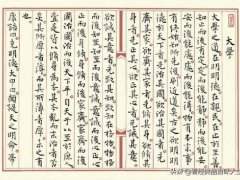 大學
大學之道在明明德在親民在止於至善
知止而后有定定而后能靜靜而后能安
安而后能慮慮而后能得物有本末事
有終始知所先後則近道矣古之欲明明
德於天下者先治其國欲治其國者先
齊其家欲齊其家者先修其身欲修
其身者先正其心欲正其心者先誠其意
欲誠其意者先致其知致知在格物物格
而后知至知至而后意誠意誠而后心正心正
而后身修身修而后家齊家齊而后
國治國治而后天下平自天子以至於庶
人壹是皆以修身為本其本亂而末治者否
矣其所厚者薄而其所薄者厚未之有也
康誥曰克明德大甲曰顧諟天之明命帝